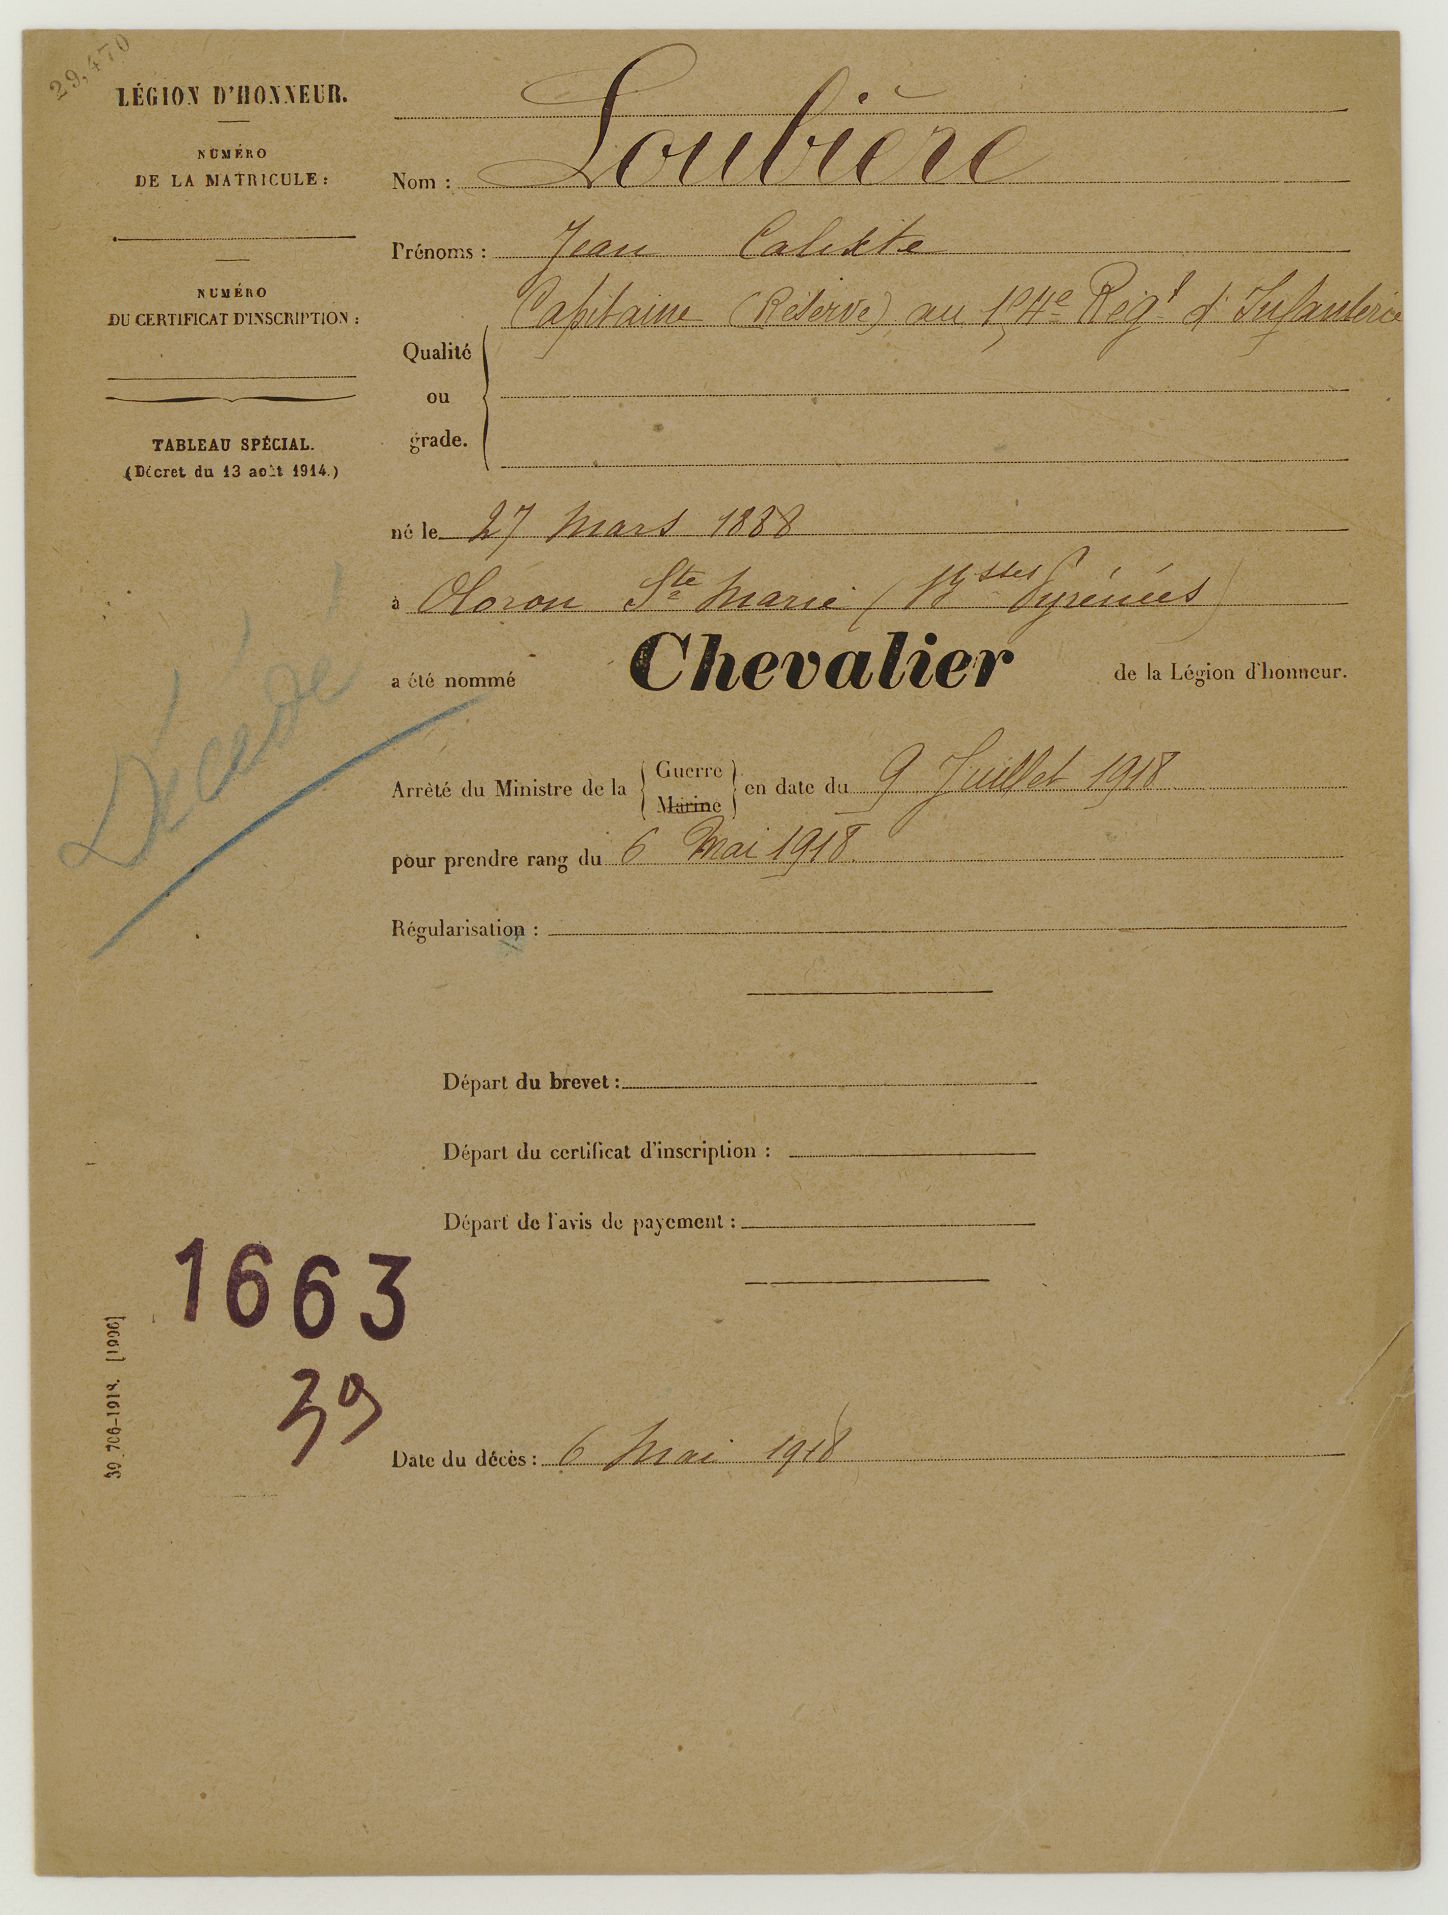 29,470
LÉGION D'HONNEUR.
NUMÉRO
DE LA MATRICULE :
NUMÉRO
DU CERTIFICAT D'INSCRIPTION :
TABLEAU SPÉCIAL.
(Décret du 13 août 1914.)
Nom : Loubière
Prénoms : Jean Calixte
Qualité
ou
grade.
Capitaine (Réserve) au Régt d'Infanterie
né le 27 Mars 1888
à Oloron Ste Marie (Bsses Pyrénées)
a été nommé Chevalier de la Légion d'honneur.
Décédé
Arrêté du Ministre de la Guerre Marine en date du 9 Juillet 1918
pour prendre rang du 6 Mai 1918.
Régularisation :
Départ du brevet :
Départ du certificat d'inscription :
Départ de l'avis de payement :
1663
39
Date du décès : 6 Mai 1918
30.706-1918. [1996]